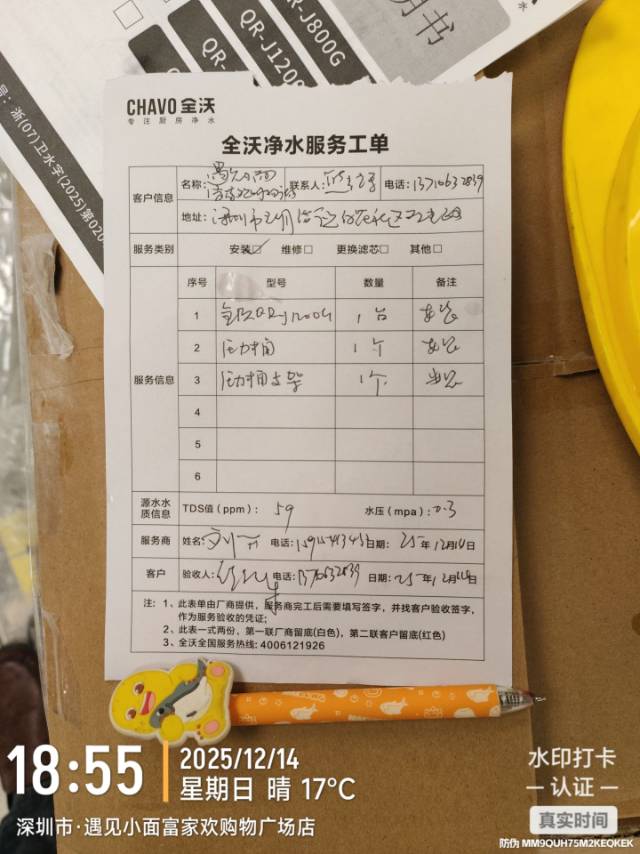 明书
QR-J800G
QR-J1200
浙(07)卫水字(2025)第020
CHAVO 全沃
专注厨房净水
全沃净水服务工单
客户信息 名称: 遇见小面 联系人: 电话: 13710632839
地址: 深圳市
服务类别 安装☑ 维修□ 更换滤芯□ 其他□
序号 型号 数量 备注
服务信息
1 全沃QR-J1200G 1台 安装
2 压力桶 1个 安装
3 压力桶支架 1个 安装
4
5
6
源水水质信息 TDS值(ppm): 59 水压(mpa): 0.3
服务商 姓名: 电话: 日期: 25年12月14日
客户 验收人: 电话: 13710632839 日期: 25年12月14日
注: 1、此表单由厂商提供,服务商完工后需要填写签字,并找客户验收签字,
作为服务验收的凭证;
2、此表一式两份,第一联厂商留底(白色),第二联客户留底(红色)
3、全沃全国服务热线: 4006121926
18:55
2025/12/14
星期日 晴 17°C
深圳市·遇见小面富家欢购物广场店
水印打卡
认证
真实时间
防伪 MM9QUH75M2KEQKEK